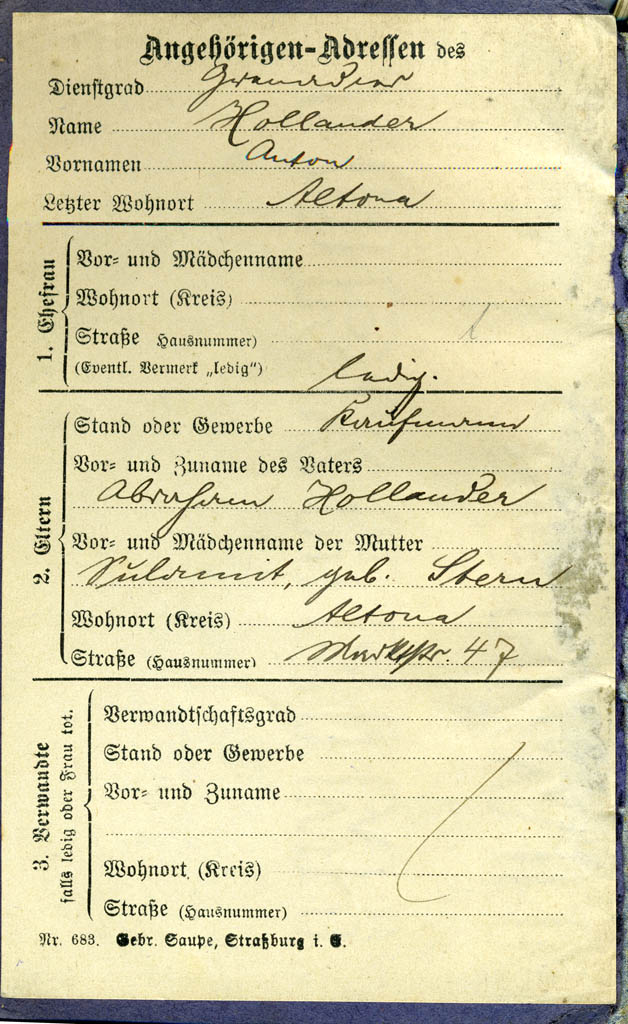 Angehörigen-Adressen des
Dienstgrad Grenadier
Name Hollander
Vornamen Anton
Letzter Wohnort Altona
1. Ehefrau
Vor- und Mädchenname
Wohnort (Kreis)
Straße (Hausnummer)
(Eventl. Vermerk „ledig“) ledig.
2. Eltern
Stand oder Gewerbe Kaufmann
Vor- und Zuname des Vaters
Abraham Hollander
Vor- und Mädchenname der Mutter
Sulamit, geb. Stern
Wohnort (Kreis) Altona
Straße (Hausnummer) Marktstr. 47
3. Verwandte
falls ledig oder Frau tot.
Verwandtschaftsgrad
Stand oder Gewerbe
Vor- und Zuname
Wohnort (Kreis)
Straße (Hausnummer)
Nr. 683. Gebr. Saupe, Straßburg i. E.